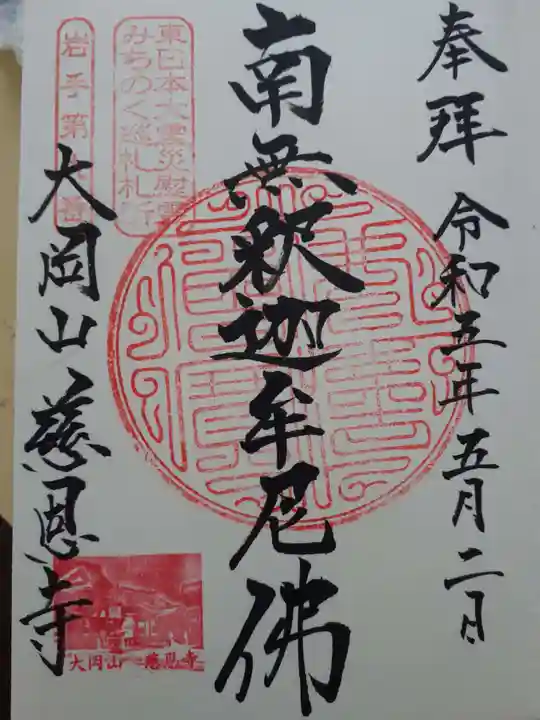 奉拝
令和五年五月二日
南無釈迦牟尼佛
東日本大震災慰霊
みちのく巡礼札所
岩手第 番
大岡山慈恩寺
大岡山 慈恩寺